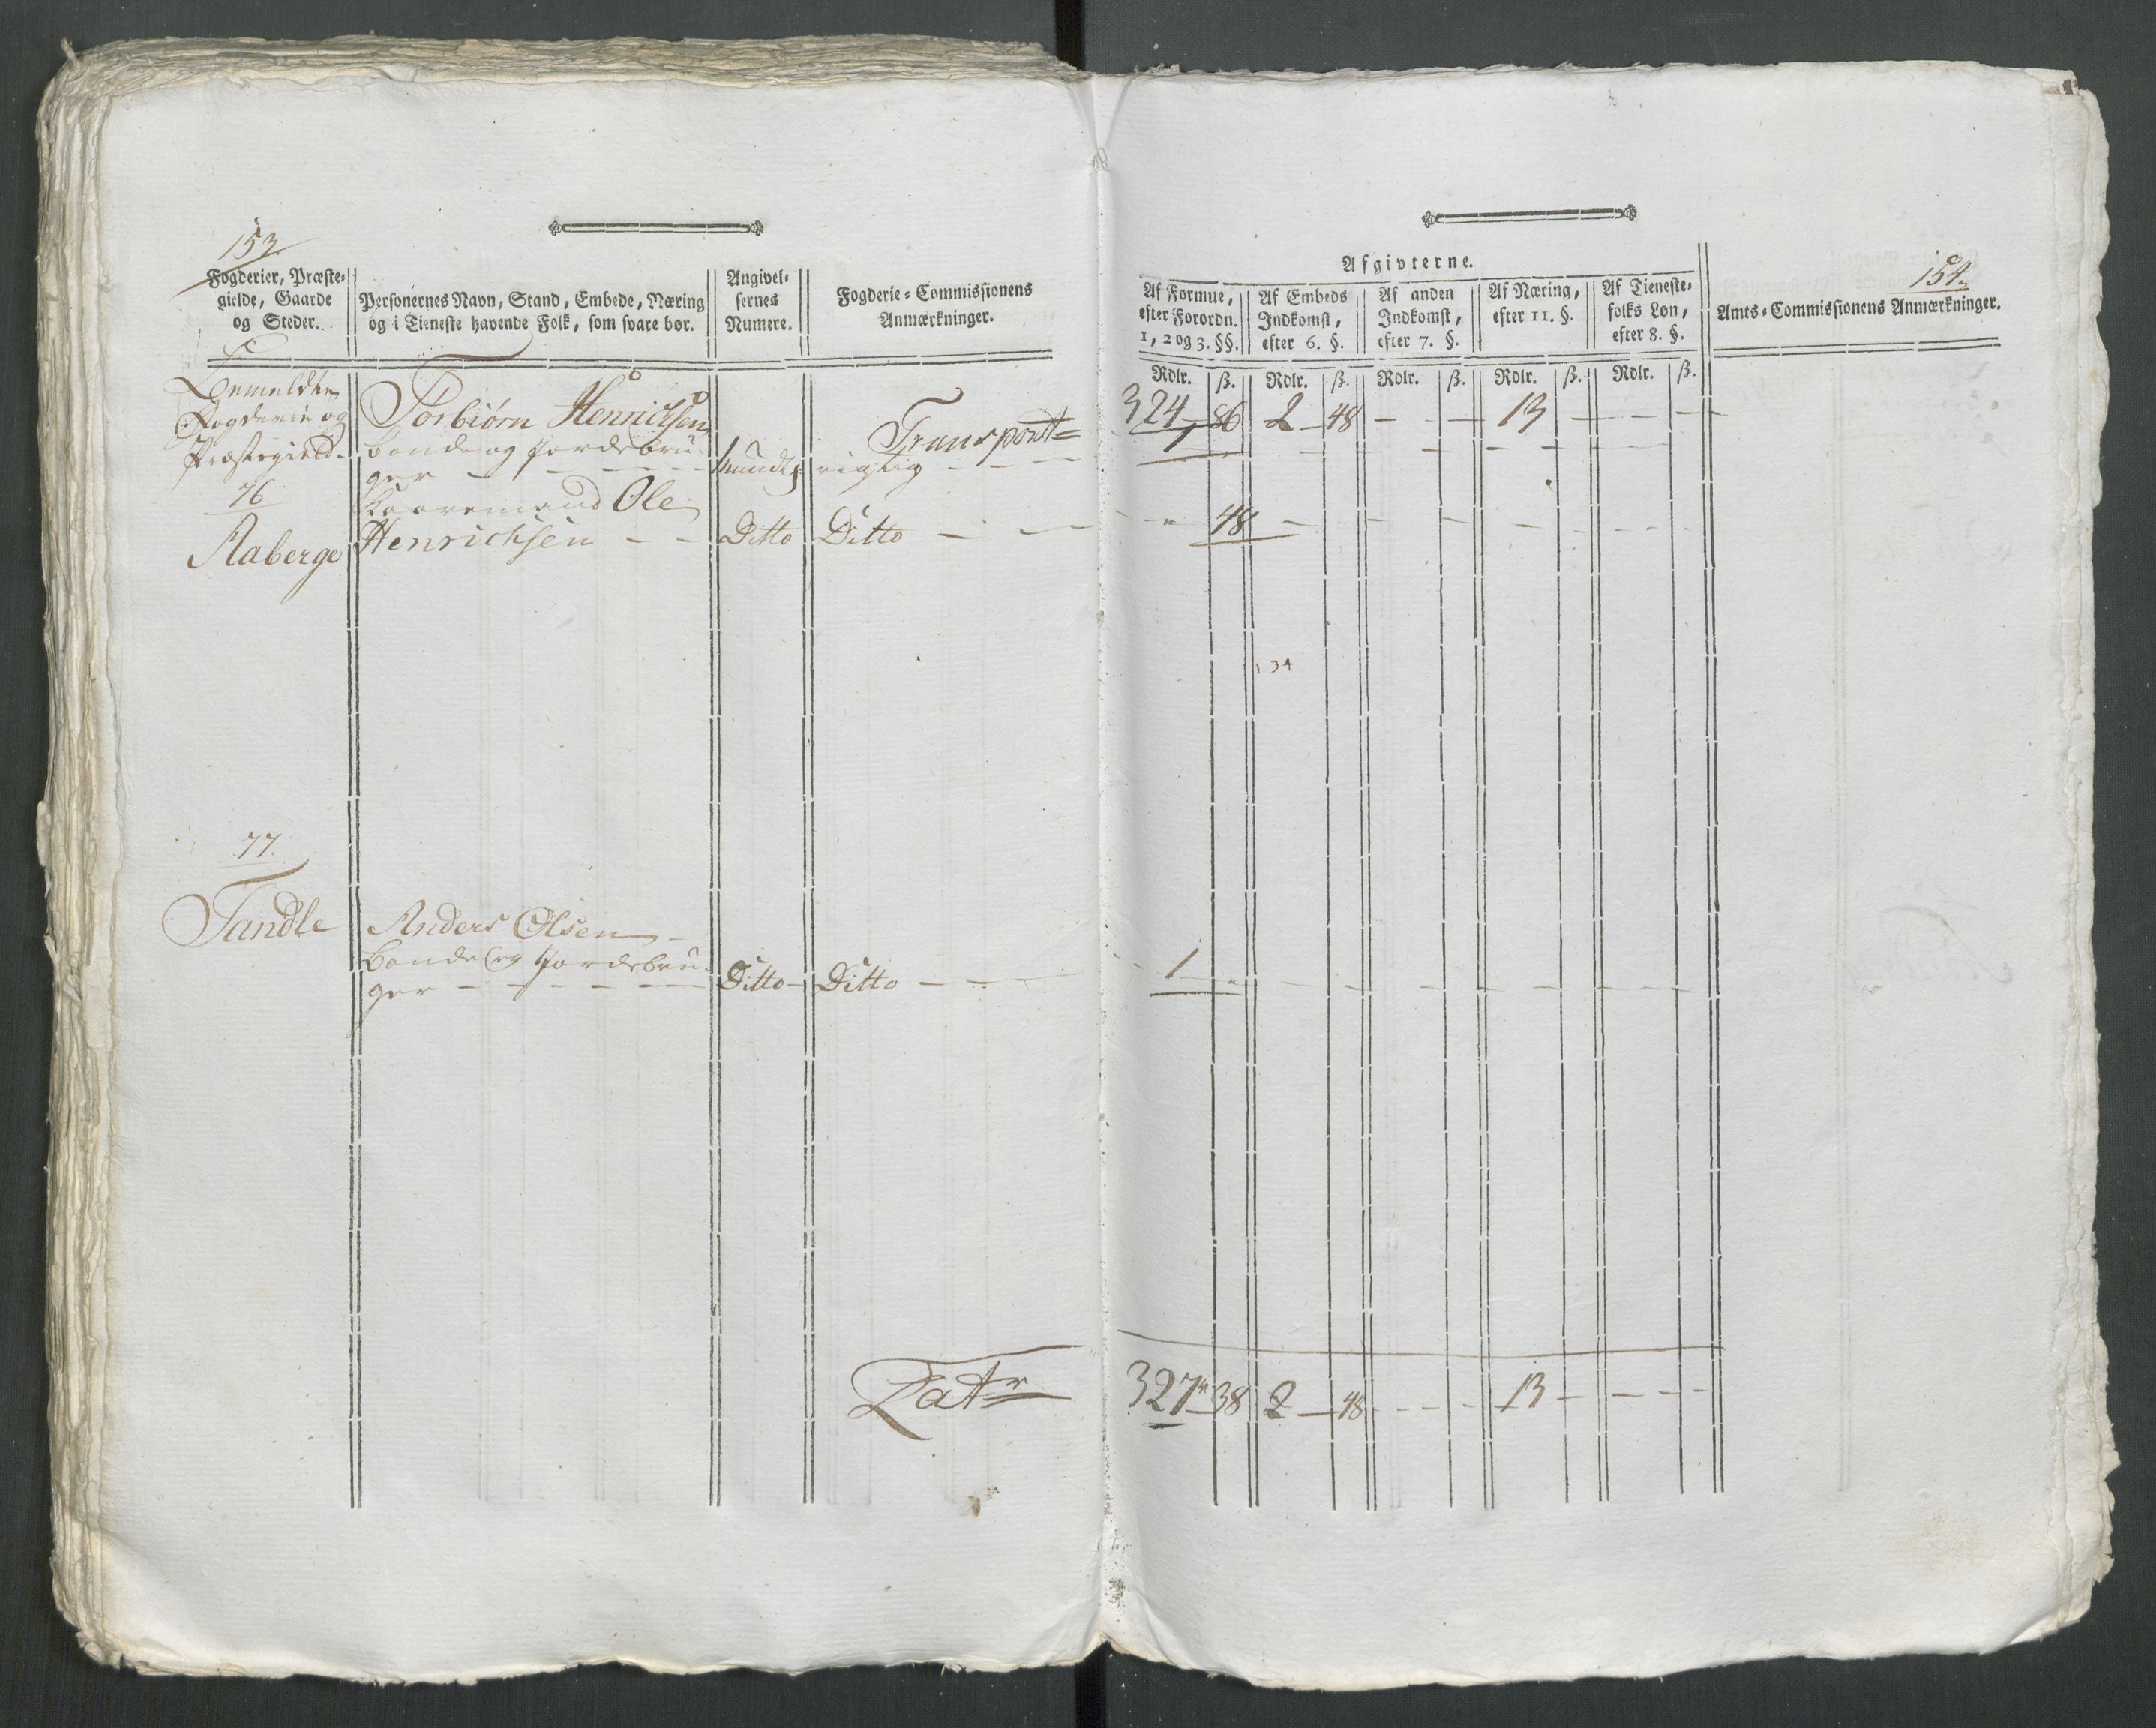 153.
Fogderier, Præste-
gielde, Gaarde
og Steder.
Personernes Navn, Stand, Embede, Næring
og i Tieneste havende Folk, som svare bør.
Angivel-
sernes
Numere.
Fogderie-Commissionens
Anmærkninger.
Bemeldte
Fogderie og
Præstegield.
76
Aaberge
Torbiørn Henrichsen
bonde og Jordebru-
ger
mundtl:
Transport
rigtig
Kaaremand Ole
Henrichsen
Ditto
Ditto
77.
Tandle
Anders Olsen
bonde og Jordebru-
ger
Ditto
Ditto
Lat
154.
Afgivterne.
Af Formue,
efter Forordn.
1, 2 og 3. §§.
Af Embeds
Indkomst,
efter 6. §.
Af anden
Indkomst,
efter 7. §.
Af Næring,
efter 11. §.
Af Tieneste-
folks Løn,
efter 8. §.
Amts-Commissionens Anmærkninger.
Rdlr. ß. Rdlr. ß. Rdlr. ß. Rdlr. ß. Rdlr. ß.
324 86 2 48 - - 13 - - -
1
48
1
327 38 2 48 - - 13 - - -